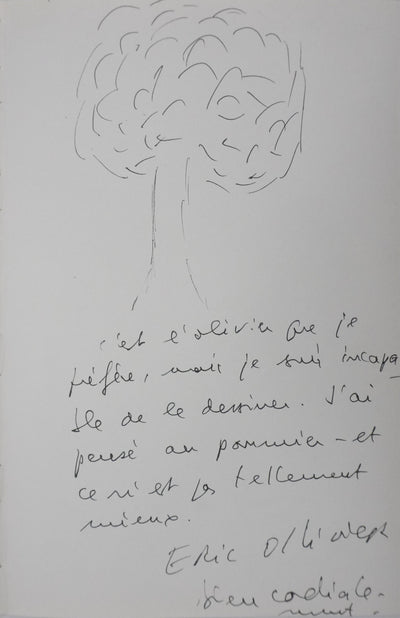 c'est l'olivier que je
préfère, mais je suis incapa-
ble de le dessiner. J'ai
pensé au pommier - et
ce n'est pas tellement
mieux.
Eric Ollivier
bien cordiale-
ment.